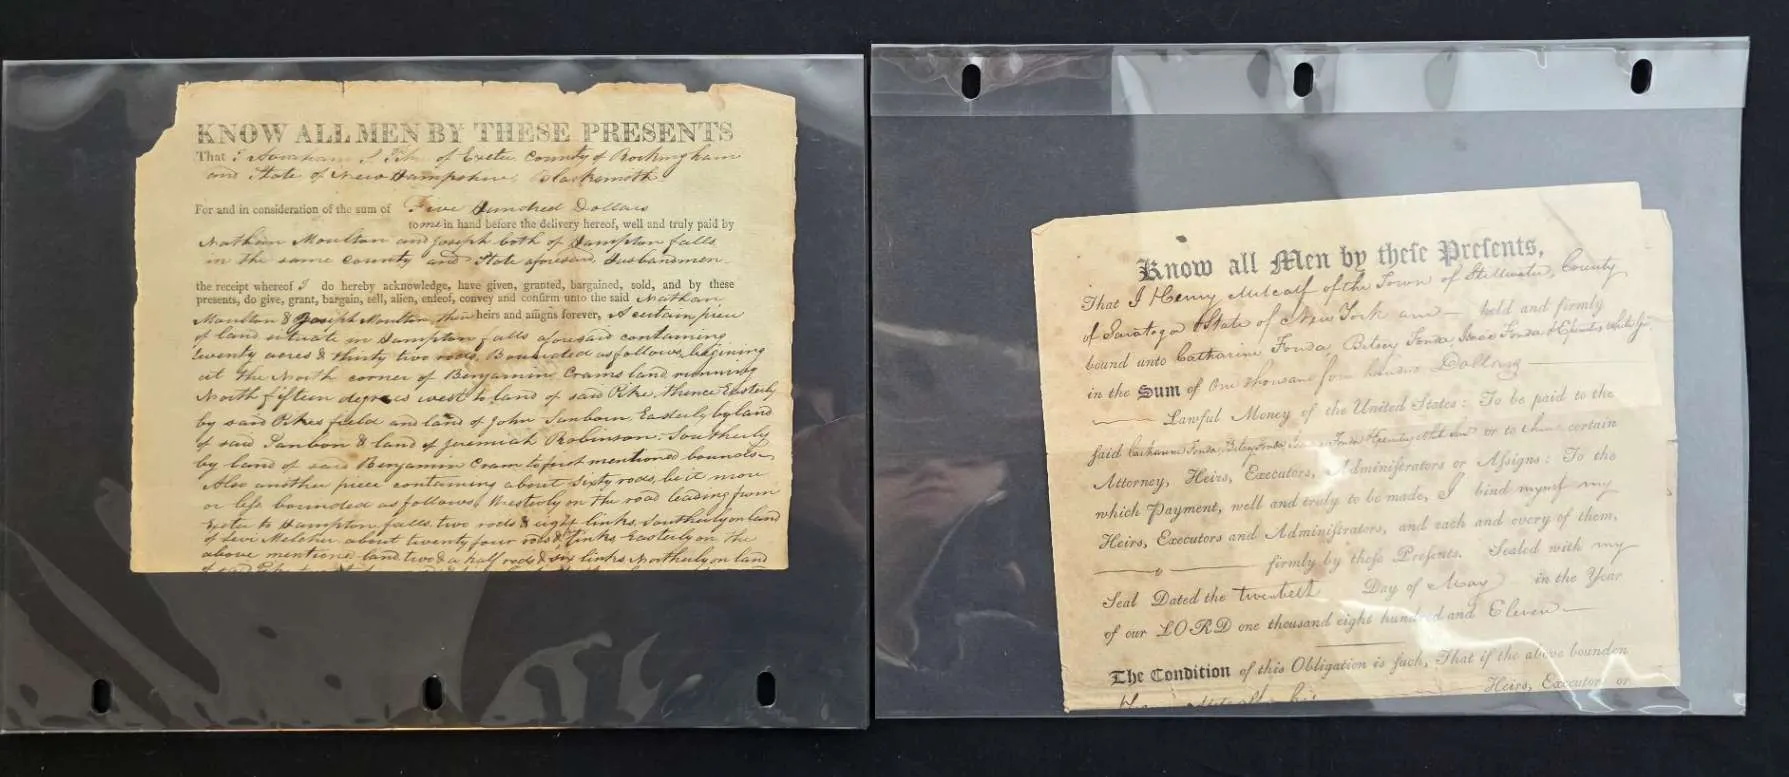 KNOW ALL MEN BY THESE PRESENTS
That I Abraham of Exeter County of Rockingham
and State of New Hampshire, Blacksmith
For and in consideration of the sum of Five Hundred Dollars
to me in hand before the delivery hereof, well and truly paid by
Nathan Moulton and Joseph both of Hampton falls
in the same County and State aforesaid Husbandmen
the receipt whereof I do hereby acknowledge, have given, granted, bargained, sold, and by these
presents, do give, grant, bargain, sell, alien, enfeof, convey and confirm unto the said Nathan
Moulton & Joseph Moulton their heirs and assigns forever, A certain piece
of land situate in Hampton falls aforesaid containing
twenty acres & thirty two rods, Bounded as follows, begining
at the North corner of Benjamin Crams land running
North fifteen degrees west to land of said Pike, thence Easterly
by said Pikes field and land of John Sanborn, Easterly by land
of said Sanbon & land of Jeremiah Robinson, Southerly
by land of said Benjamin Cram to first mentioned bounds
Also another piece containing about Sixty rods, be it more
or less bounded as follows, Westerly on the road leading from
Exeter to Hampton falls, two rods & eight links, Southerly on land
of Levi Melcher about twenty four rods & links, Easterly on the
above mentioned land, two & a half rods & six links, Northerly on land
Know all Men by theſe Preſents,
That I Henry Metcalf of the Town of Stillwater, County
of Saratoga & State of New York am held and firmly
bound unto Catharine Fonda, Betsey Fonda, Isaac Fonda &
in the Sum of One thousand four hundred Dollars
Lawful Money of the United States: To be paid to the
ſaid Catharine Fonda, Betsey Fonda, Isaac Fonda & or to their certain
Attorney, Heirs, Executors, Adminiſtrators or Aſsigns: To the
which Payment, well and truly to be made, I bind myself my
Heirs, Executors and Adminiſtrators, and each and every of them,
firmly by theſe Preſents. Sealed with my
Seal Dated the twentieth Day of May in the Year
of our LORD one thousand eight hundred and Eleven
The Condition of this Obligation is ſuch, That if the above bounden
Heirs, Executors or